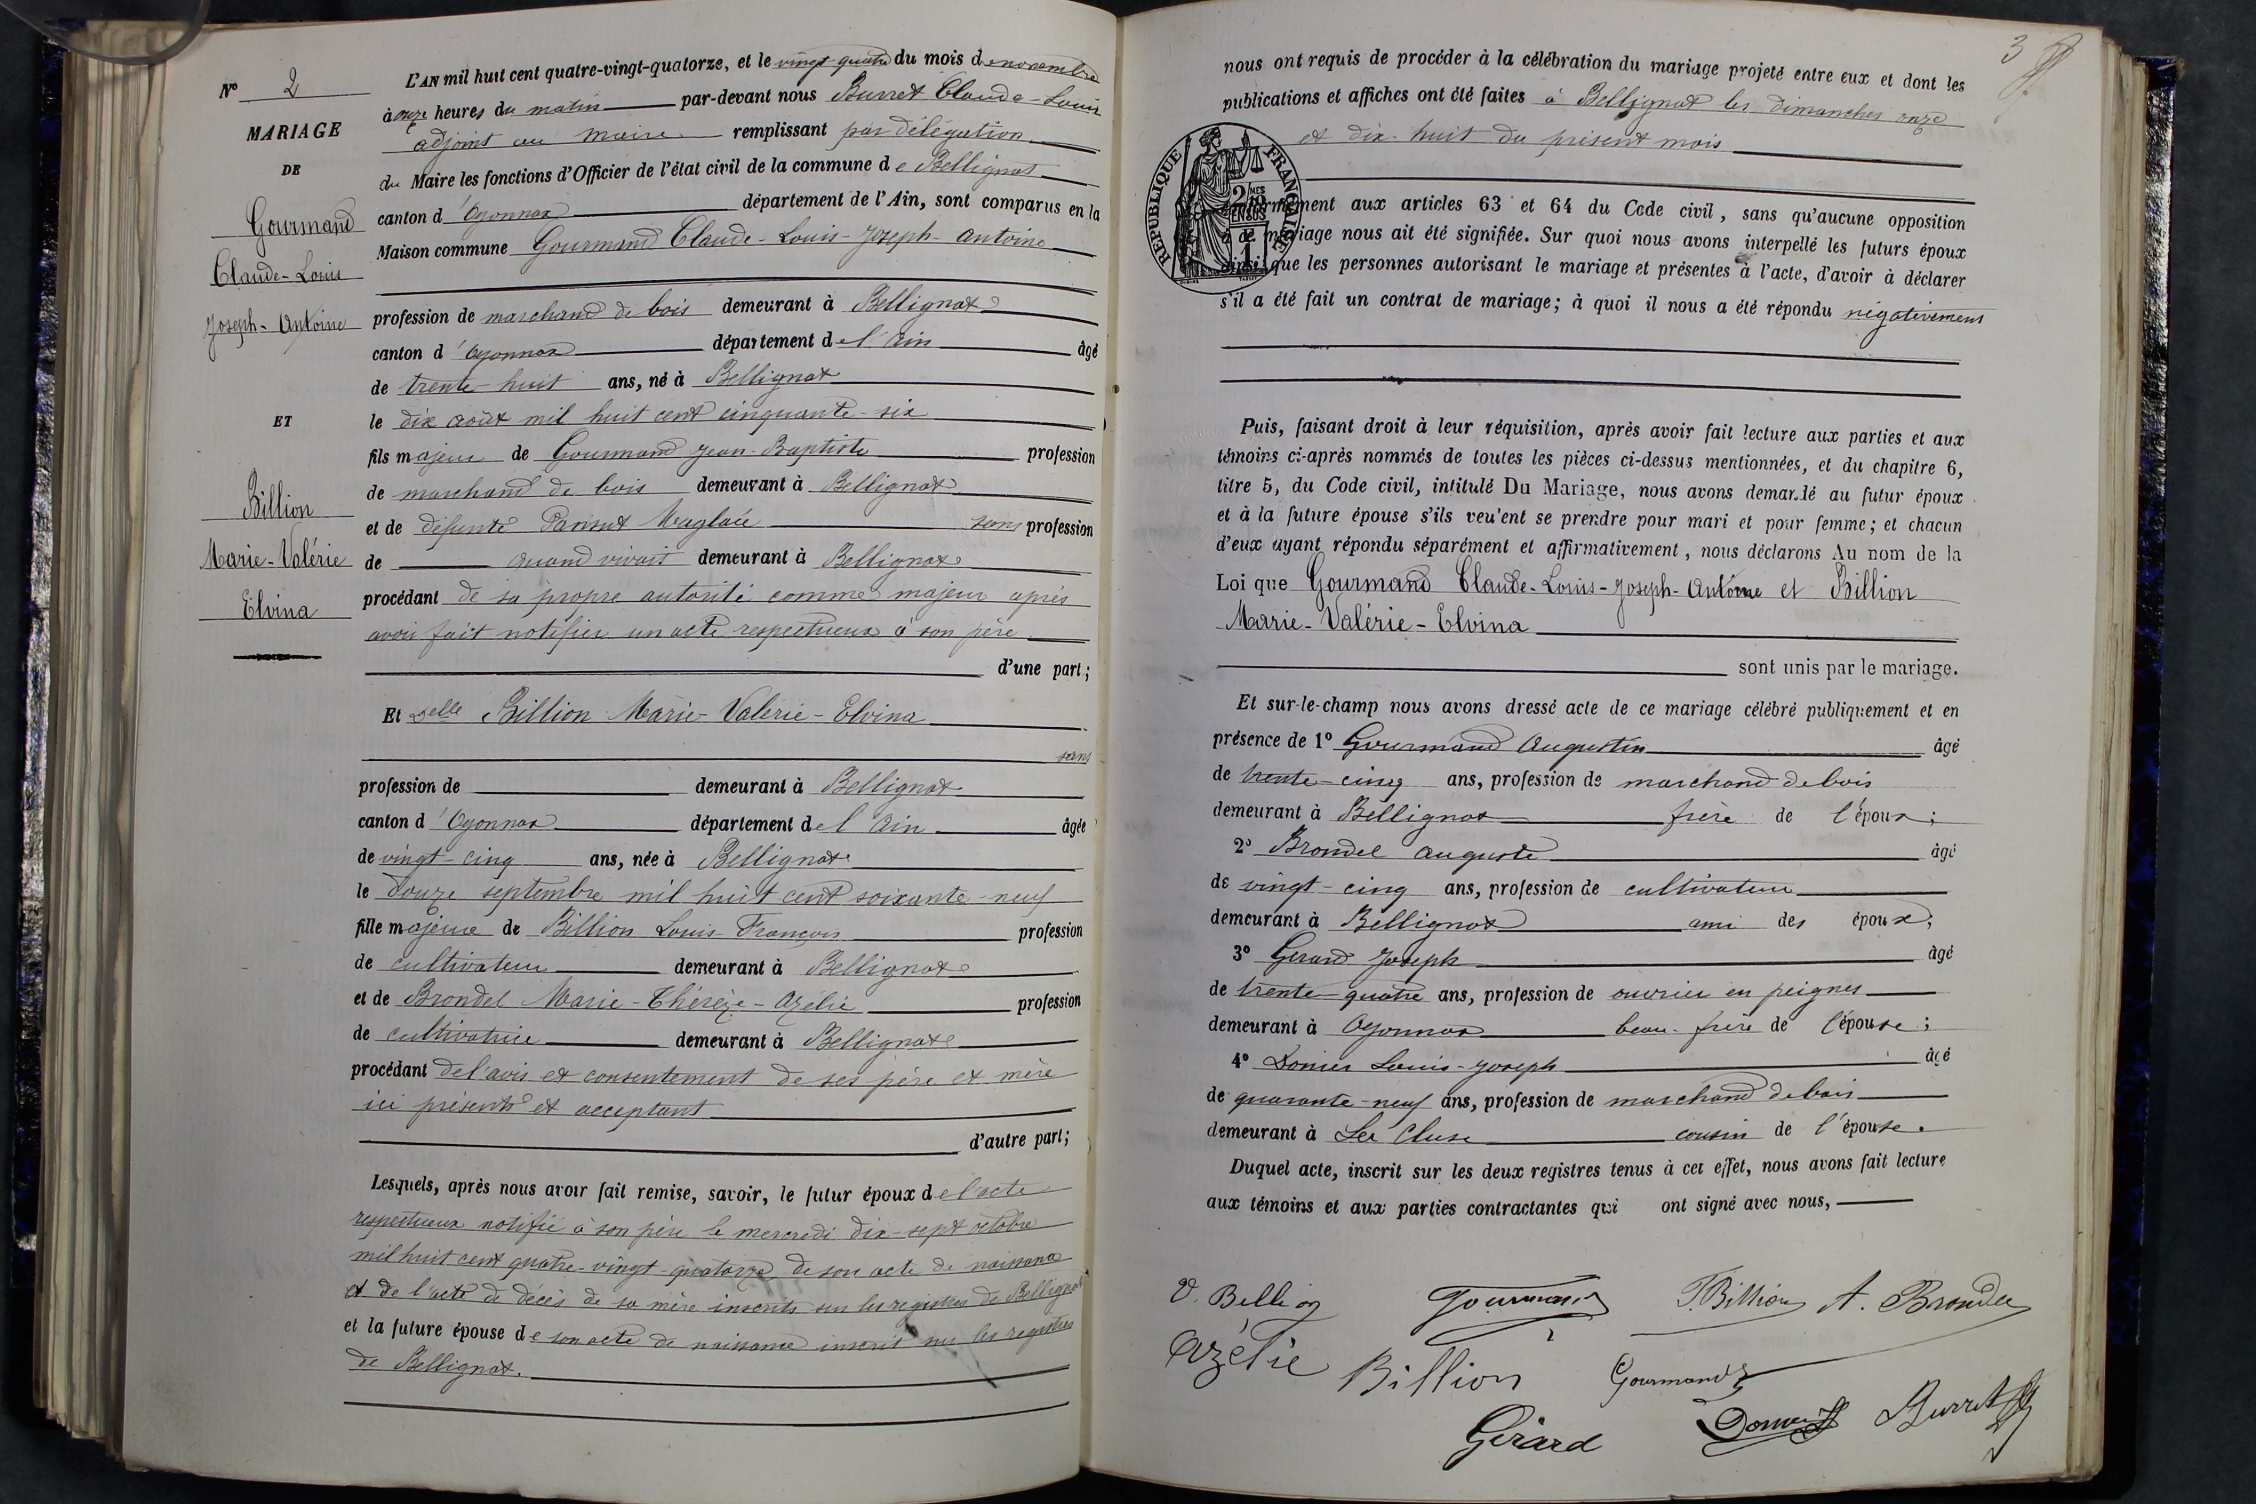 N° 2
MARIAGE
DE
Gourmand
Claude-Louis
Joseph-Antoine
ET
Billion
Marie-Valérie
Elvina
L'AN mil huit cent quatre-vingt-quatorze, et le vingt-quatre du mois de novembre
à onze heures du matin par-devant nous Burret Claude-Louis
adjoint au maire remplissant par délégation
du Maire les fonctions d'Officier de l'état civil de la commune de Bellignat
canton d'Oyonnax département de l'Ain, sont comparus en la
Maison commune Gourmand Claude-Louis-Joseph-Antoine
profession de marchand de bois demeurant à Bellignat
canton d'Oyonnax département de l'Ain âgé
de trente-huit ans, né à Bellignat
le dix août mil huit cent cinquante-six
fils majeur de Gourmand Jean-Baptiste profession
de marchand de bois demeurant à Bellignat
et de défunte Parisut Maglaée sans profession
de quand vivait demeurant à Bellignat
procédant de sa propre autorité comme majeur après
avoir fait notifier un acte respectueux à son père
d'une part;
Et Delle Billion Marie-Valérie-Elvina
sans
profession de demeurant à Bellignat
canton d'Oyonnax département de l'Ain âgée
de vingt-cinq ans, née à Bellignat
le douze septembre mil huit cent soixante-neuf
fille majeure de Billion Louis-François profession
de cultivateur demeurant à Bellignat
et de Brondel Marie-Thérèze-Azélie profession
de cultivatrice demeurant à Bellignat
procédant de l'avis et consentement de ses père et mère
ici présents et acceptant
d'autre part;
Lesquels, après nous avoir fait remise, savoir, le futur époux de l'acte
respectueux notifié à son père le mercredi dix-sept octobre
mil huit cent quatre-vingt-quatorze de son acte de naissance
et de l'acte de décès de sa mère inscrits sur les registres de Bellignat
et la future épouse de son acte de naissance inscrit sur les registres
de Bellignat.
3
nous ont requis de procéder à la célébration du mariage projeté entre eux et dont les
publications et affiches ont été faites à Bellignat les dimanches onze
et dix-huit du présent mois
RÉPUBLIQUE FRANÇAISE
2/10MES
EN SUS
conformément aux articles 63 et 64 du Code civil, sans qu'aucune opposition
à ce mariage nous ait été signifiée. Sur quoi nous avons interpellé les futurs époux
ainsi que les personnes autorisant le mariage et présentes à l'acte, d'avoir à déclarer
s'il a été fait un contrat de mariage; à quoi il nous a été répondu négativement
Puis, faisant droit à leur réquisition, après avoir fait lecture aux parties et aux
témoins ci-après nommés de toutes les pièces ci-dessus mentionnées, et du chapitre 6,
titre 5, du Code civil, intitulé Du Mariage, nous avons demandé au futur époux
et à la future épouse s'ils veulent se prendre pour mari et pour femme; et chacun
d'eux ayant répondu séparément et affirmativement, nous déclarons Au nom de la
Loi que Gourmand Claude-Louis-Joseph-Antoine et Billion
Marie-Valérie-Elvina
sont unis par le mariage.
Et sur-le-champ nous avons dressé acte de ce mariage célébré publiquement et en
présence de 1° Gourmand Augustin âgé
de trente-cinq ans, profession de marchand de bois
demeurant à Bellignat frère de l'époux;
2° Brondel Auguste âgé
de vingt-cinq ans, profession de cultivateur
demeurant à Bellignat ami des époux;
3° Gérard Joseph âgé
de trente-quatre ans, profession de ouvrier en peignes
demeurant à Oyonnax beau-frère de l'épouse;
4° Donier Louis-Joseph âgé
de quarante-neuf ans, profession de marchand de bois
demeurant à La Cluse cousin de l'épouse.
Duquel acte, inscrit sur les deux registres tenus à cet effet, nous avons fait lecture
aux témoins et aux parties contractantes qui ont signé avec nous,
V. Billion Gourmand F. Billion A. Brondel
Azélie Billion Gourmand
Gérard Donier Burret